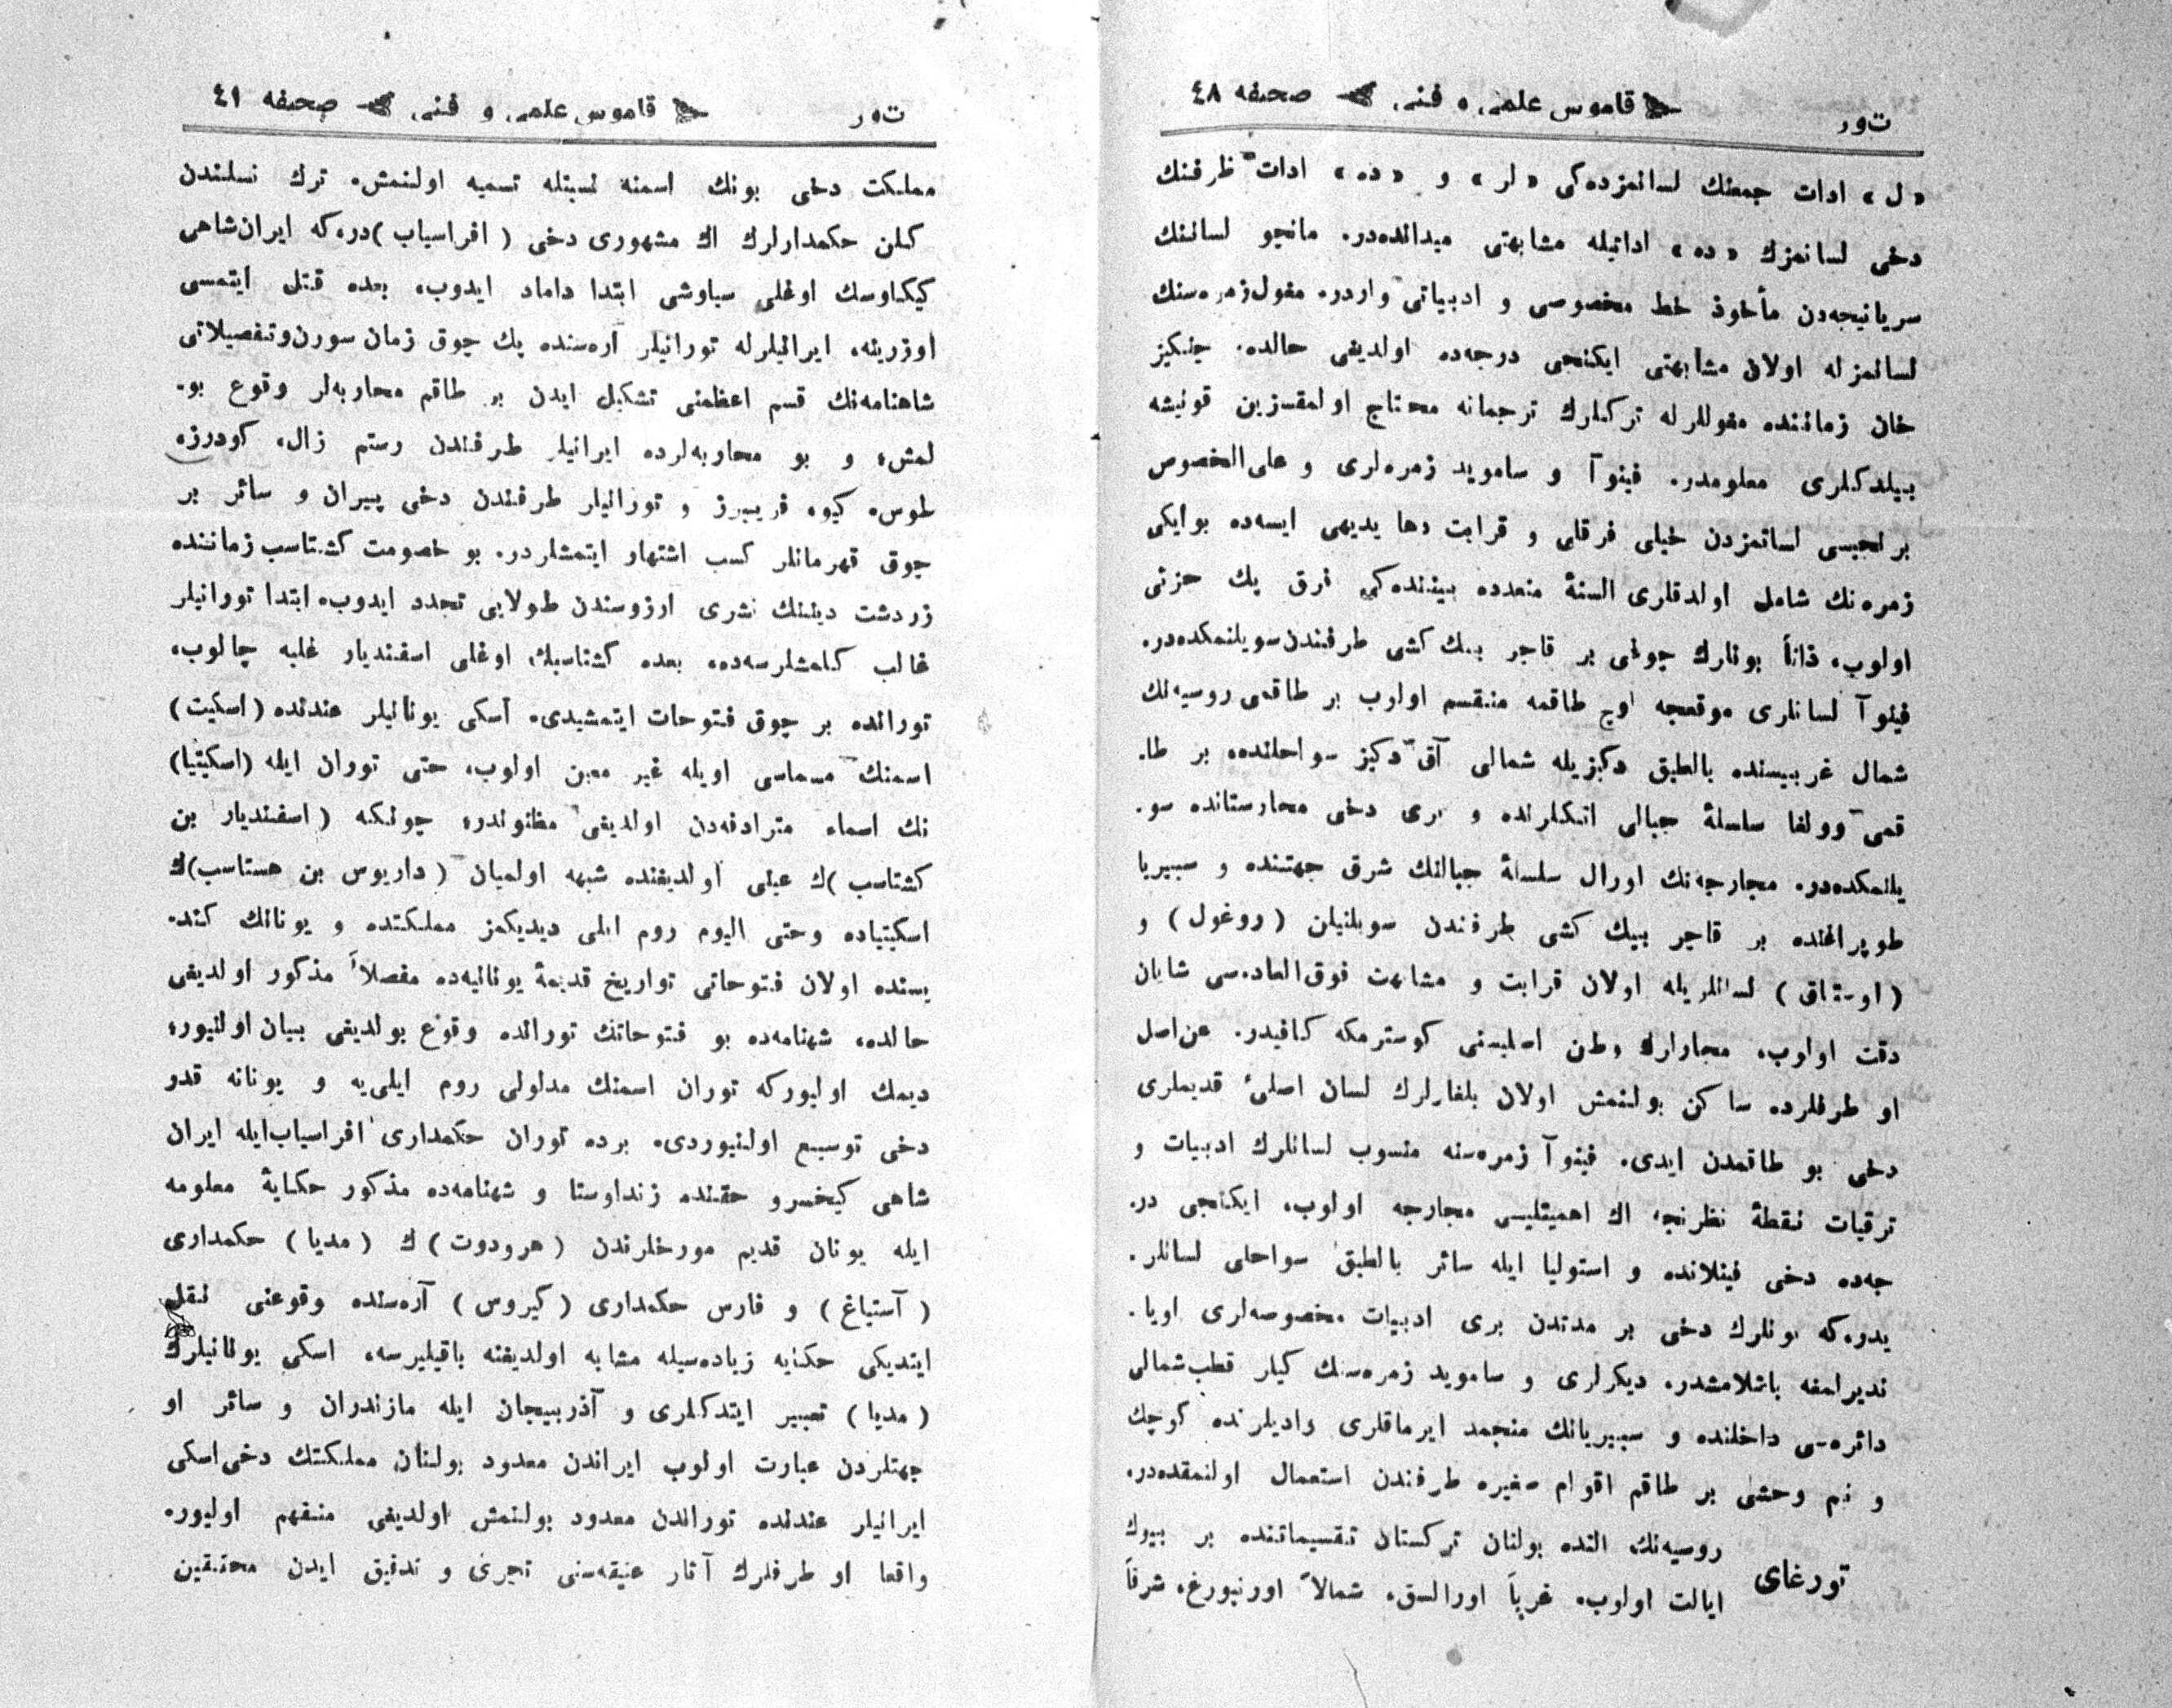 تور قاموس علمی و فنی صحیفه ٤٨
«ل» ادات جمعنك لسانمزده‌كی «لر» و «ده» ادات ظرفنك
دخی لسانمزك «ده» اداتیله مشابهتی میدانده‌در. مانچو لساننك
سریانیجه‌دن مأخوذ خط مخصوصی و ادبیاتی واردر. مغول زمره‌سنك
لسانمزله اولان مشابهتی ایكنجی درجه‌ده اولدیغی حالده، چنكیز
خان زماننده مغوللرله تركلرك ترجمانه محتاج اولمقسزین قونیشه
بیلدكلری معلومدر. فینوآ و سامويد زمره‌لری و علی‌الخصوص
برنجیسی لسانمزدن خیلی فرقلی و قرابت دها بدیهی ایسه‌ده بوایكی
زمره‌نك شامل اولدقلری السنهٔ متعدده بیننده‌كی فرق پك جزئی
اولوب، ذاتاً بونلرك چوغی بر قاچر بیك كشی طرفندن سویلنمكده‌در.
فینوآ لسانلری موقعجه اوچ طاقمه منقسم اولوب بر طاقمی روسیه‌نك
شمال غربیسنده بالطیق دكزیله شمالی آق دكیز سواحلنده، بر طا-
قمی وولغا سلسلهٔ جبالی اتكلرنده و بری دخی مجارستانده سو-
یلنمكده‌در. مجارجه‌نك اورال سلسلهٔ جبالنك شرق جهتنده و سیبریا
طوپراغنده بر قاچر بیك كشی طرفندن سویلنیلن (ووغول) و
(اوستاق) لسانلریله اولان قرابت و مشابهت فوق‌العاده‌سی شایان
دقت اولوب، مجارلرك وطن اصلیسنی كوسترمكه كافیدر. عن‌اصل
او طرفلرده ساكن بولنمش اولان بلغارلرك لسان اصلیٔ قدیملری
دخی بو طاقمدن ایدی. فینوآ زمره‌سنه منسوب لسانلرك ادبیات و
ترقیات نقطهٔ نظرنجه اك اهمیتلیسی مجارجه اولوب، ایكنجی در-
جه‌ده دخی فینلانده و استونیا ایله سائر بالطیق سواحلی لسانلر-
یدر، كه بونلرك دخی بر مدتدن بری ادبیات مخصوصه‌لری اویا-
ندیرلمغه باشلامشدر. دیكرلری و سامويد زمره‌سنك كیلر قطب‌شمالی
دائره‌سی داخلنده و سیبریانك منجمد ایرماقلری وادیلرنده كوچك
و نیم وحشی بر طاقم اقوام صغیره طرفندن استعمال اولنمقده‌در.
تورغای روسیه‌نك النده بولنان تركستان تقسیماتنده بر بیوك
ایالت اولوب، غرباً اورالسق، شمالاً اورنبورغ، شرقاً
تور قاموس علمی و فنی صحیفه ٤٩
مملكت دخی بونك اسمنه نسبتله تسمیه اولنمش. ترك نسلندن
كلن حكمدارلرك اك مشهوری دخی (افراسیاب) در، كه ایران‌شاهی
كیكاوسك اوغلی سیاوشی ابتدا داماد ایدوب، بعده قتل ایتمسی
اوزرینه، ایرانیلرله تورانیلر آره‌سنده پك چوق زمان سورن‌وتفصیلاتی
شاهنامه‌نك قسم اعظمنی تشكیل ایدن بر طاقم محاربه‌لر وقوع بو-
لمش، و بو محاربه‌لرده ایرانیلر طرفندن رستم زال، كودرز،
طوس، كیو، فریبرز و تورانیلر طرفندن دخی پیران و سائر بر
چوق قهرمانلر كسب اشتهار ایتمشلردر. بو خصومت كشتاسب زماننده
زردشت دیننك نشری آرزوسندن طولایی تجدد ایدوب، ابتدا تورانیلر
غالب كلمشلرسه‌ده، بعده كشتاسبك اوغلی اسفندیار غلبه چالوب،
تورانده بر چوق فتوحات ایتمشیدی. اسكی یونانیلر عندنده (اسكیت)
اسمنك مسماسی اویله غیر معین اولوب، حتی توران ایله (اسكیتیا)
نك اسماء مترادفه‌دن اولدیغی مظنوندر، چونكه (اسفندیار بن
كشتاسب)ك عینی اولدیغنده شبهه اولمیان (داریوس بن هستاسب)ك
اسكیتیاده وحتی الیوم روم ایلی دیدیكمز مملكتده و یونانك كند-
یسنده اولان فتوحاتی تواریخ قدیمهٔ یونانیه‌ده مفصلاً مذكور اولدیغی
حالده، شهنامه‌ده بو فتوحاتك تورانده وقوع بولدیغی بیان اولنیور،
دیمك اولیوركه توران اسمنك مدلولی روم ایلی‌یه و یونانه قدر
دخی توسیع اولنیوردی. برده توران حكمداری افراسیاب‌ایله ایران
شاهی كیخسرو حقنده زنداوستا و شهنامه‌ده مذكور حكایهٔ معلومه
ایله یونان قدیم مورخلرندن (هرودوت)ك (مدیا) حكمداری
(آستیاغ) و فارس حكمداری (كیروس) آره‌سنده وقوعنی نقل
ایتدیكی حكایه زیاده‌سیله مشابه اولدیغنه باقیلیرسه، اسكی یونانیلرك
(مدیا) تعبیر ایتدكلری و آذربیجان ایله مازندران و سائر او
جهتلردن عبارت اولوب ایراندن معدود بولنان مملكتك دخی‌اسكی
ایرانیلر عندنده توراندن معدود بولنمش اولدیغی منفهم اولیور.
واقعا او طرفلرك آثار عتیقه‌سنی تحری و تدقیق ایدن محققین